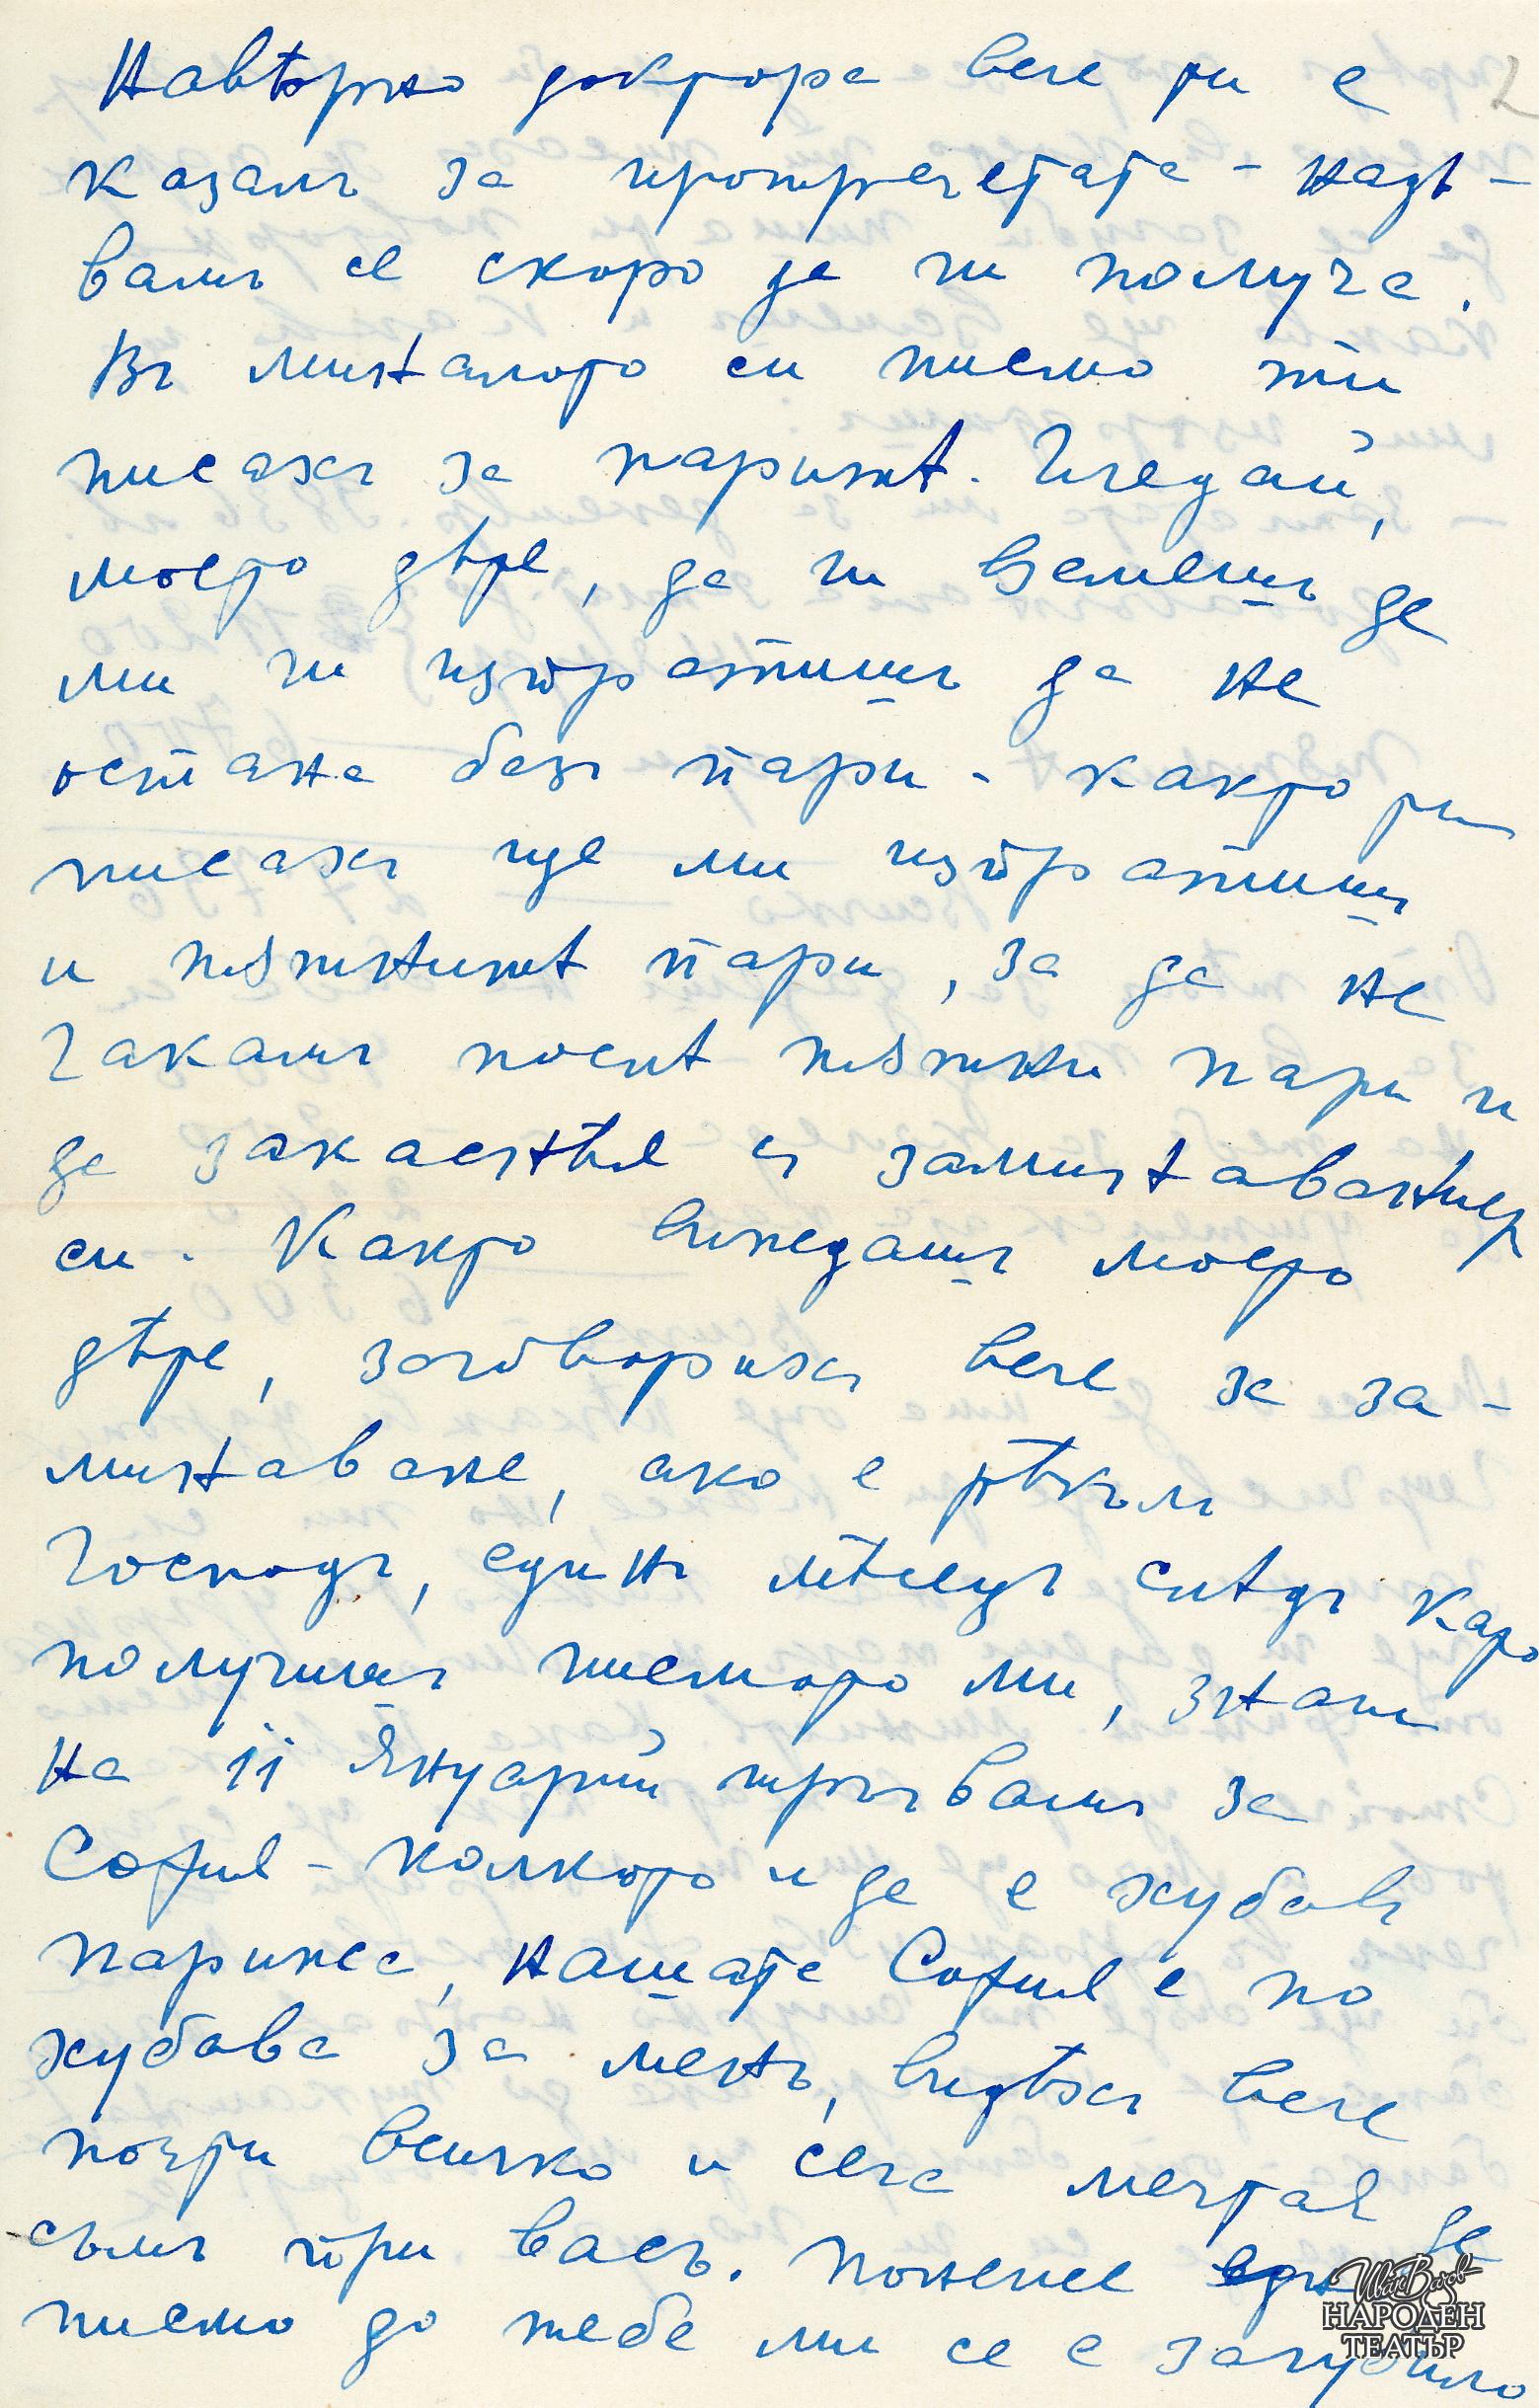 Навѣрно доктора вече ти е
казалъ за протрегетата - надѣ-
вамъ се скоро да ги получа.
Въ миналото си писмо ти
писахъ за паритѣ. Гледай,
моето дѣте, да ги вземешъ да
ми ги изпратишъ да не
остана безъ пари - както ти
писахъ ще ми изпратишъ
и пѫтнитѣ пари, за да не
чакамъ послѣ пѫтни пари и
да закаснѣя съ заминаванието
си. Както виждашъ моето
дѣте, заговорихъ вече за за-
минаване, ако е рѣкълъ
Господь, единъ мѣсецъ слѣдъ като
получишъ писмото ми, значи
на 11 Януарий тръгвамъ за
София - колкото и да е хубавъ
Парижъ, нашата София е по
хубава за менъ, видѣхъ вече
почти всичко и сега мечтая да
съмъ при васъ. Понеже
писмо до тебе ми се е загубило
Иван Вазов
НАРОДЕН
ТЕАТЪР